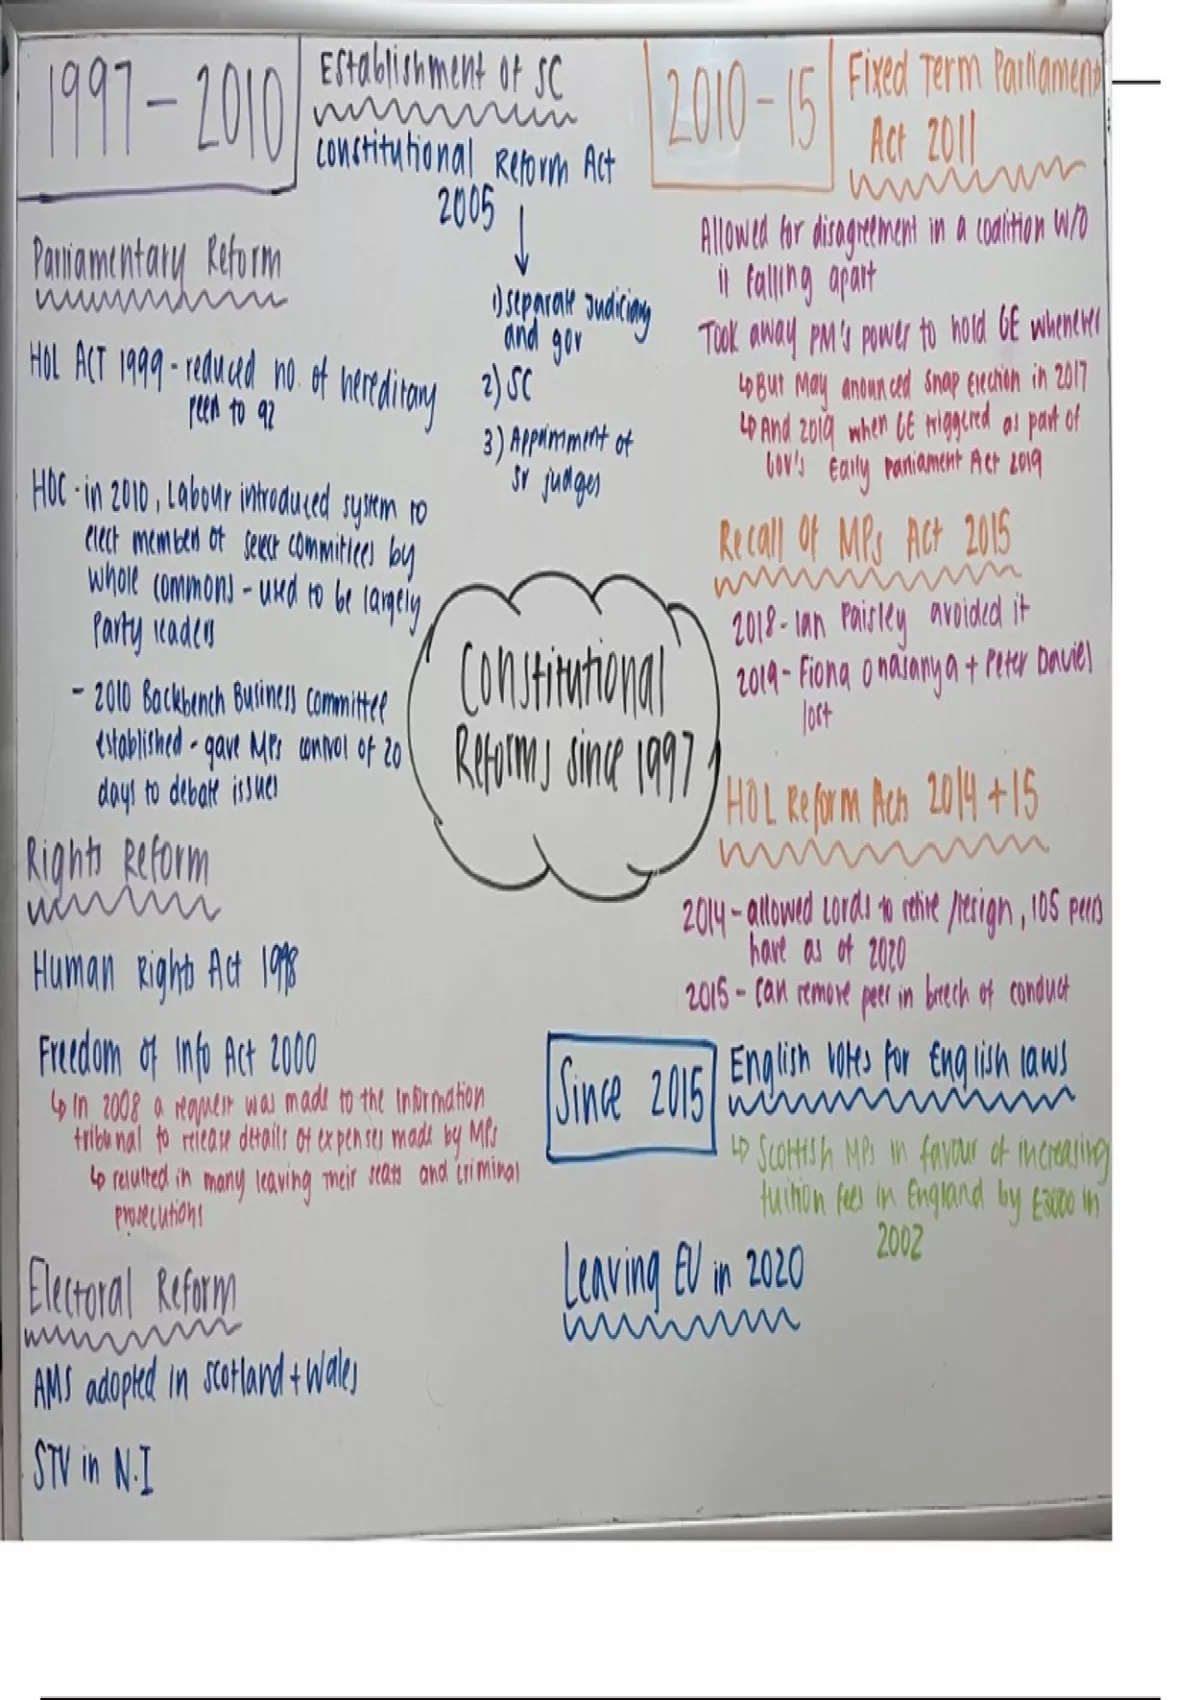 1997-2010
Parliamentary Reform
HOL ACT 1999 - reduced no. of hereditary
peers to 92
HOC - in 2010, Labour introduced system to
elect members of select committees by
whole commons - used to be largely
Party leaders
- 2010 Backbench Business Committee
established - gave MPs control of 20
days to debate issues
Rights Reform
Human Rights Act 1998
Freedom of Info Act 2000
↳ In 2008 a request was made to the information
tribunal to release details of expenses made by MPs
↳ resulted in many leaving their seats and criminal
prosecutions
Electoral Reform
AMS adopted in Scotland + Wales
STV in N.I
Establishment of SC
Constitutional Reform Act
2005
↓
1) separate judiciary
and gov
2) SC
3) Appointment of
Sr judges
Constitutional
Reforms since 1997
2010-15
Fixed Term Parliament
Act 2011
Allowed for disagreement in a coalition W/O
it falling apart
Took away PM's power to hold GE whenever
↳ But May anounced snap Election in 2017
↳ And 2019 when GE triggered as part of
Gov's Early Parliament Act 2019
Recall Of MPs Act 2015
2018 - Ian Paisley avoided it
2019 - Fiona Onasanya + Peter Davies
lost
HOL Reform Acts 2014 + 15
2014 - allowed Lords to retire/resign, 105 peers
have as of 2020
2015 - can remove peer in breech of conduct
Since 2015
English Votes for English laws
↳ Scottish MPs in favour of increasing
tuition fees in England by £3000 in
2002
Leaving EU in 2020